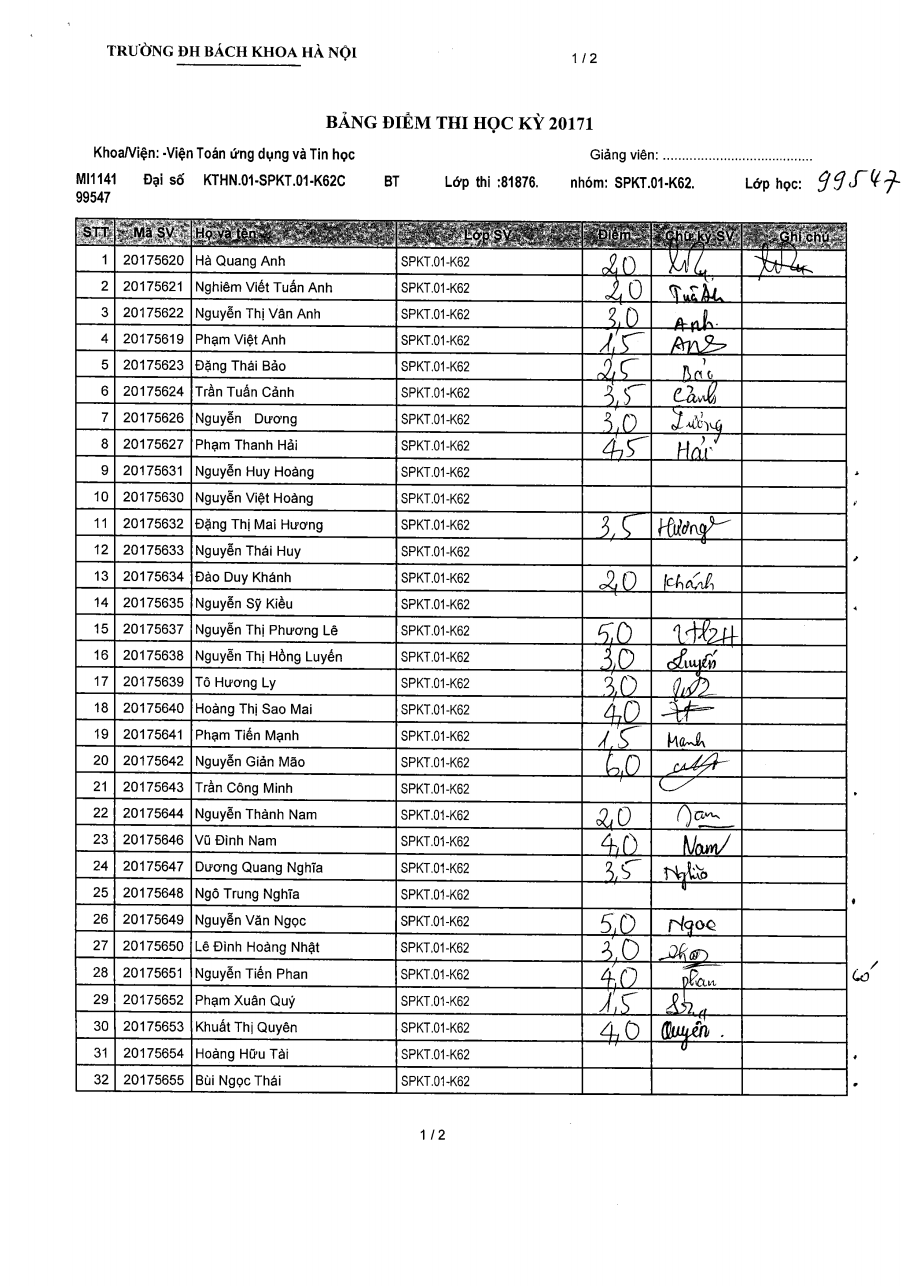 TRƯỜNG ĐH BÁCH KHOA HÀ NỘI 1 / 2
BẢNG ĐIỂM THI HỌC KỲ 20171
Khoa/Viện: -Viện Toán ứng dụng và Tin học Giảng viên: ........................................
MI1141 Đại số KTHN.01-SPKT.01-K62C BT Lớp thi :81876. nhóm: SPKT.01-K62. Lớp học: 99547
99547
STT Mã SV Họ và tên Lớp SV Điểm Chữ ký SV Ghi chú
1 20175620 Hà Quang Anh SPKT.01-K62 2,0
2 20175621 Nghiêm Viết Tuấn Anh SPKT.01-K62 2,0
3 20175622 Nguyễn Thị Vân Anh SPKT.01-K62 3,0 Anh
4 20175619 Phạm Việt Anh SPKT.01-K62 1,5 Anh
5 20175623 Đặng Thái Bảo SPKT.01-K62 2,5 Bảo
6 20175624 Trần Tuấn Cảnh SPKT.01-K62 3,5 Cảnh
7 20175626 Nguyễn Dương SPKT.01-K62 3,0 Dương
8 20175627 Phạm Thanh Hải SPKT.01-K62 4,5 Hải
9 20175631 Nguyễn Huy Hoàng SPKT.01-K62
10 20175630 Nguyễn Việt Hoàng SPKT.01-K62
11 20175632 Đặng Thị Mai Hương SPKT.01-K62 3,5 Hương
12 20175633 Nguyễn Thái Huy SPKT.01-K62
13 20175634 Đào Duy Khánh SPKT.01-K62 2,0 Khánh
14 20175635 Nguyễn Sỹ Kiều SPKT.01-K62
15 20175637 Nguyễn Thị Phương Lê SPKT.01-K62 5,0
16 20175638 Nguyễn Thị Hồng Luyến SPKT.01-K62 3,0 Luyến
17 20175639 Tô Hương Ly SPKT.01-K62 3,0
18 20175640 Hoàng Thị Sao Mai SPKT.01-K62 4,0
19 20175641 Phạm Tiến Mạnh SPKT.01-K62 1,5 Manh
20 20175642 Nguyễn Giản Mão SPKT.01-K62 6,0
21 20175643 Trần Công Minh SPKT.01-K62
22 20175644 Nguyễn Thành Nam SPKT.01-K62 2,0 Nam
23 20175646 Vũ Đình Nam SPKT.01-K62 4,0 Nam
24 20175647 Dương Quang Nghĩa SPKT.01-K62 3,5 Nghĩa
25 20175648 Ngô Trung Nghĩa SPKT.01-K62
26 20175649 Nguyễn Văn Ngọc SPKT.01-K62 5,0 Ngoc
27 20175650 Lê Đình Hoàng Nhật SPKT.01-K62 3,0
28 20175651 Nguyễn Tiến Phan SPKT.01-K62 4,0 phan có
29 20175652 Phạm Xuân Quý SPKT.01-K62 1,5
30 20175653 Khuất Thị Quyên SPKT.01-K62 4,0 Quyên.
31 20175654 Hoàng Hữu Tài SPKT.01-K62
32 20175655 Bùi Ngọc Thái SPKT.01-K62
1 / 2